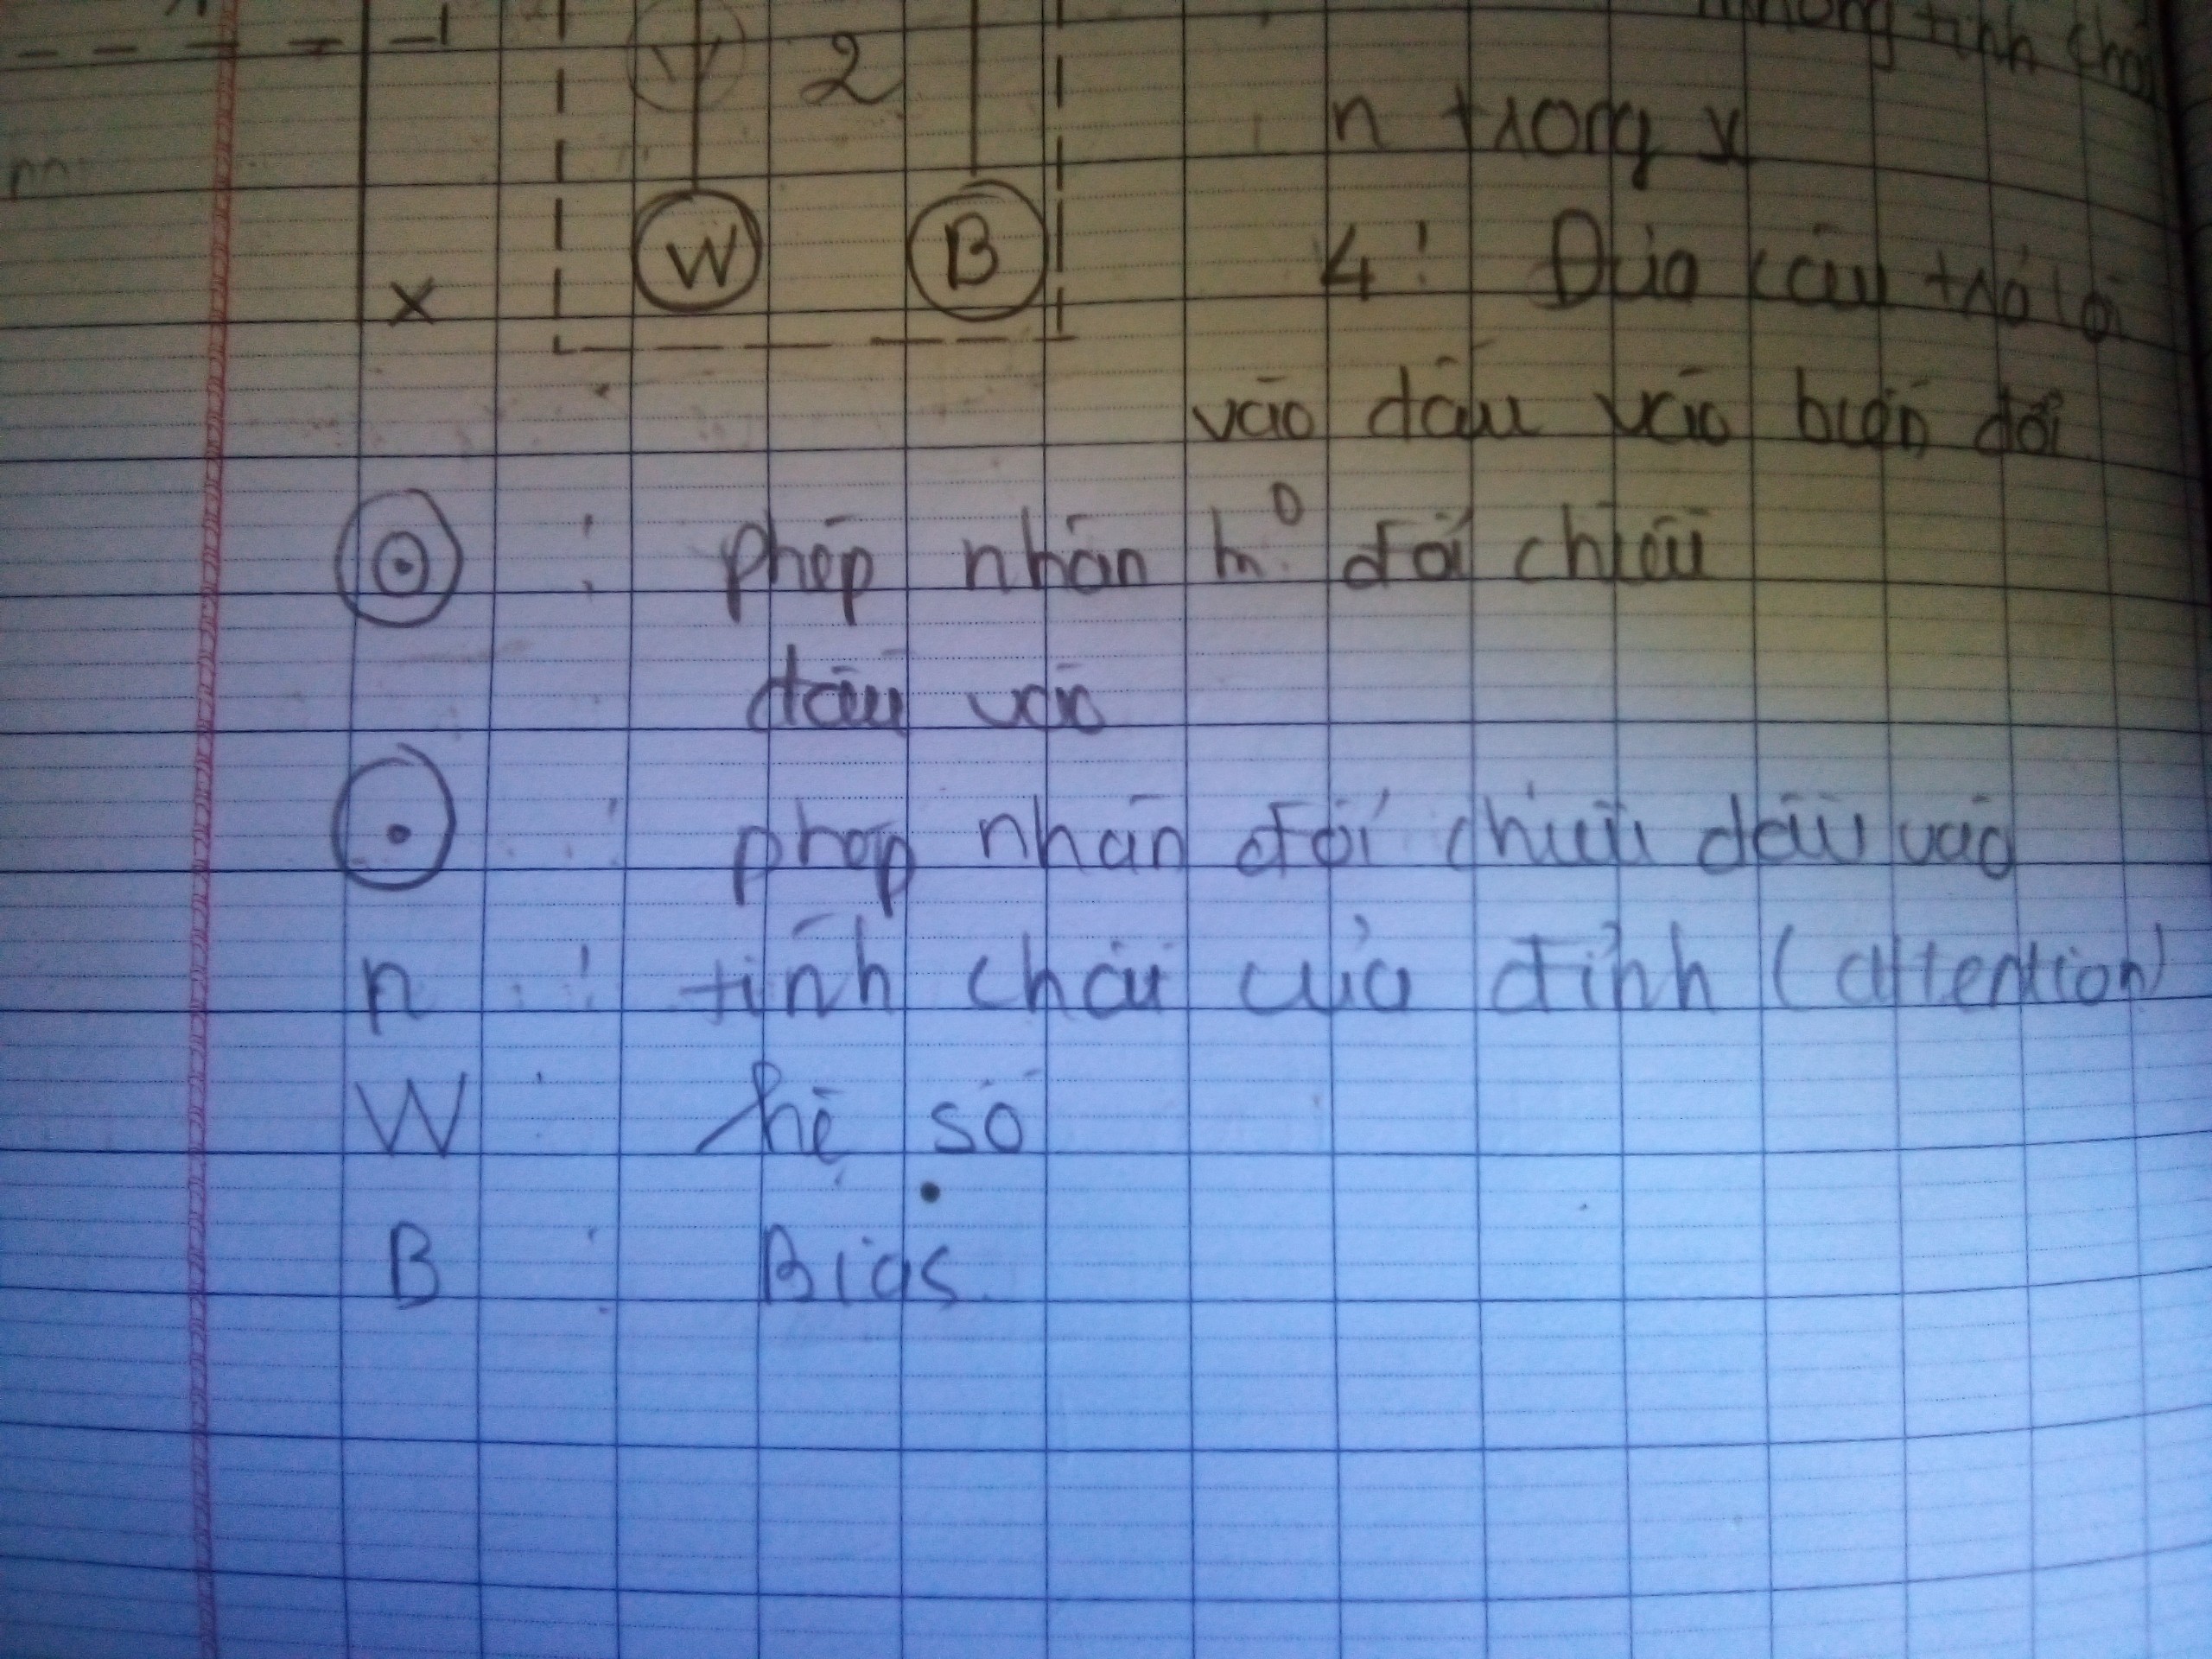 những tính chất
2
n trong x
W B
4: Đưa câu trả lời
x
vào đầu vào biến đổi
⊙ : phép nhân đối chiếu
đầu vào
⊙ : phép nhân đối chiếu đầu vào
n : tính chất của đỉnh (attention)
W : hệ số
B : Bias